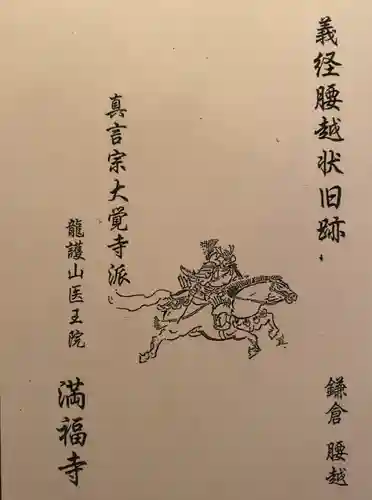 義経腰越状旧跡
鎌倉 腰越
真言宗大覚寺派
龍護山医王院
満福寺